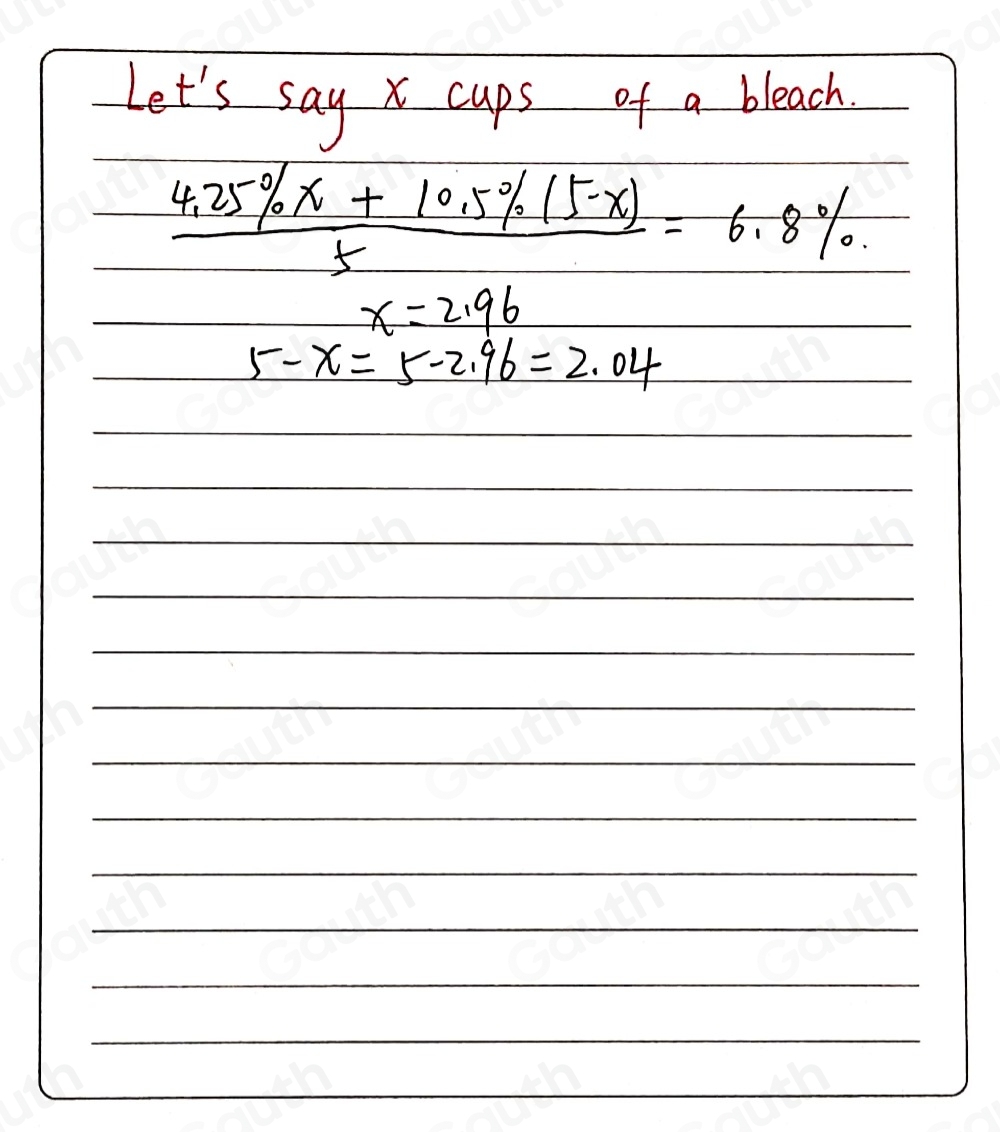 Let's say x cups of a bleach.
4.25%x + 10.5%(5-x)
5
= 6.8%.
x=2.96
5-x=5-2.96=2.04
Gauth